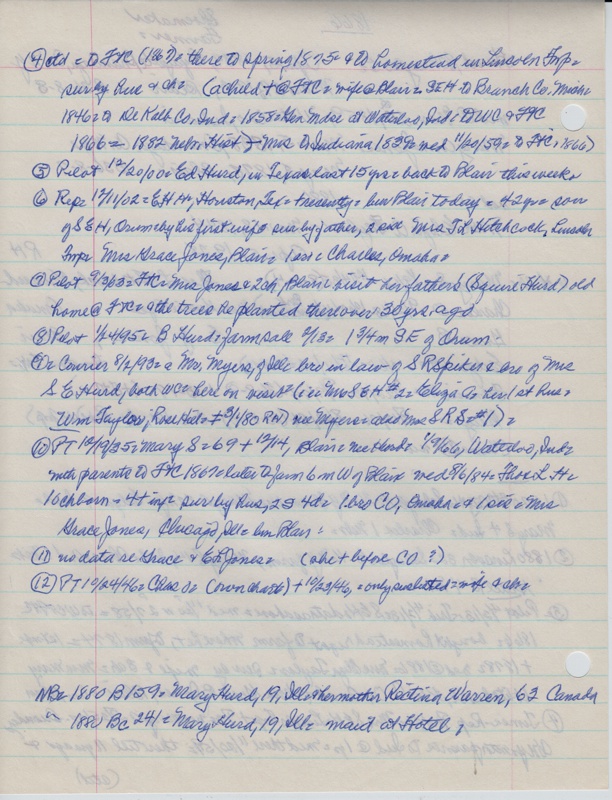 ④ ctd = to FTC (1867) = there to spring 1875 = & to homestead in Lincoln Twp =
sur by hus & ch = (a child + @ FTC = wife @ Blair = SEH to Branch Co, Mich =
1846 = to De Kalb Co, Ind = 1858 = Gen Mdse at Waterloo, Ind = to WC & FTC
1866 = 1882 Nebr Hist) = Mrs to Indiana 1839 = med 11/20/59 = to FTC, 1866)
⑤ Pilot 12/20/00 = Ed Hurd, in Texas last 15 yrs = back to Blair this week =
⑥ Rep = 12/11/02 = E H H, Houston, Tex = + recently = bur Blair today = 42 yr = son
of S E H, Orum by his first wife sur by father, 2 sis Mrs T L Hitchcock, Lincoln
Twp Mrs Grace Jones, Blair = 1 bro = Charles, Omaha =
⑦ Pilot FTC = Mrs Jones & 2 ch, Blair = visit her father's (Squire Hurd) old
home @ FTC = & the trees he planted there over 30 yrs. ago
⑧ Pilot 1/24/95 = B Hurd = farm sale 2/13 = 1 3/4 m SE of Orum
⑨ Or Courier 8/2/93 = a Mr. Myers, of Ill = bro in law of S R Spiker & are of Mrs
S E Hurd, both WC = here on visit = (i.e. Mrs S E H #2 = Eliza A = her 1st hus =
Wm Taylor, Rose Hill = + 3/1/80 RH) nee Myers = also Mrs S R S = #1) =
⑩ PT 12/19/35 = Mary S = 69 + 12/14, Blair = nee Hurd = 1/9/66, Waterloo, Ind =
with parents to FTC 1867 = later to farm 6 m W of Blair med 8/6/84 = Thos L H =
10 ch born = 4 + inf = sur by hus, 2S 4d = 1 bro CO, Omaha = & 1 sis = Mrs
Grace Jones, Chicago, Ill = bur Blair =
⑪ no data re Grace & E L Jones = (she + before CO ?)
⑫ PT 10/24/46 = Chas O = (own chart) + 10/23/46 = only = wife & ch =
NB = 1880 B 159 = Mary Hurd, 19, Ill = & her mother Warren, 62 Canada
" 1880 Bc 241 = Mary Hurd, 19, Ill = maid at Hotel,